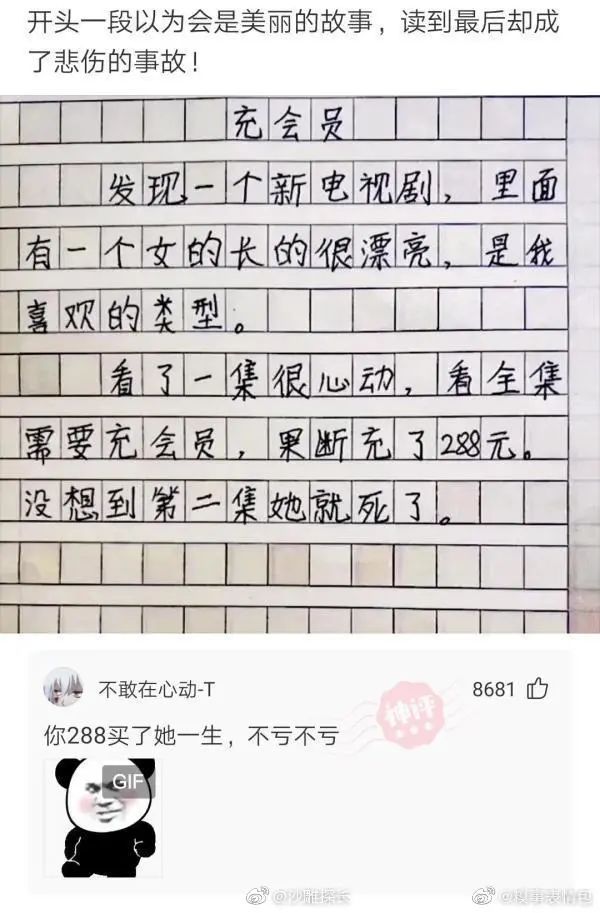 开头一段以为会是美丽的故事，读到最后却成
了悲伤的事故！
充会员
发现一个新电视剧，里面
有一个女的长的很漂亮，是我
喜欢的类型。
看了一集很心动，看全集
需要充会员，果断充了288元。
没想到第二集她就死了。
不敢在心动-T
神评
8681
你288买了她一生，不亏不亏
GIF
@沙雕探长
@糗事表情包